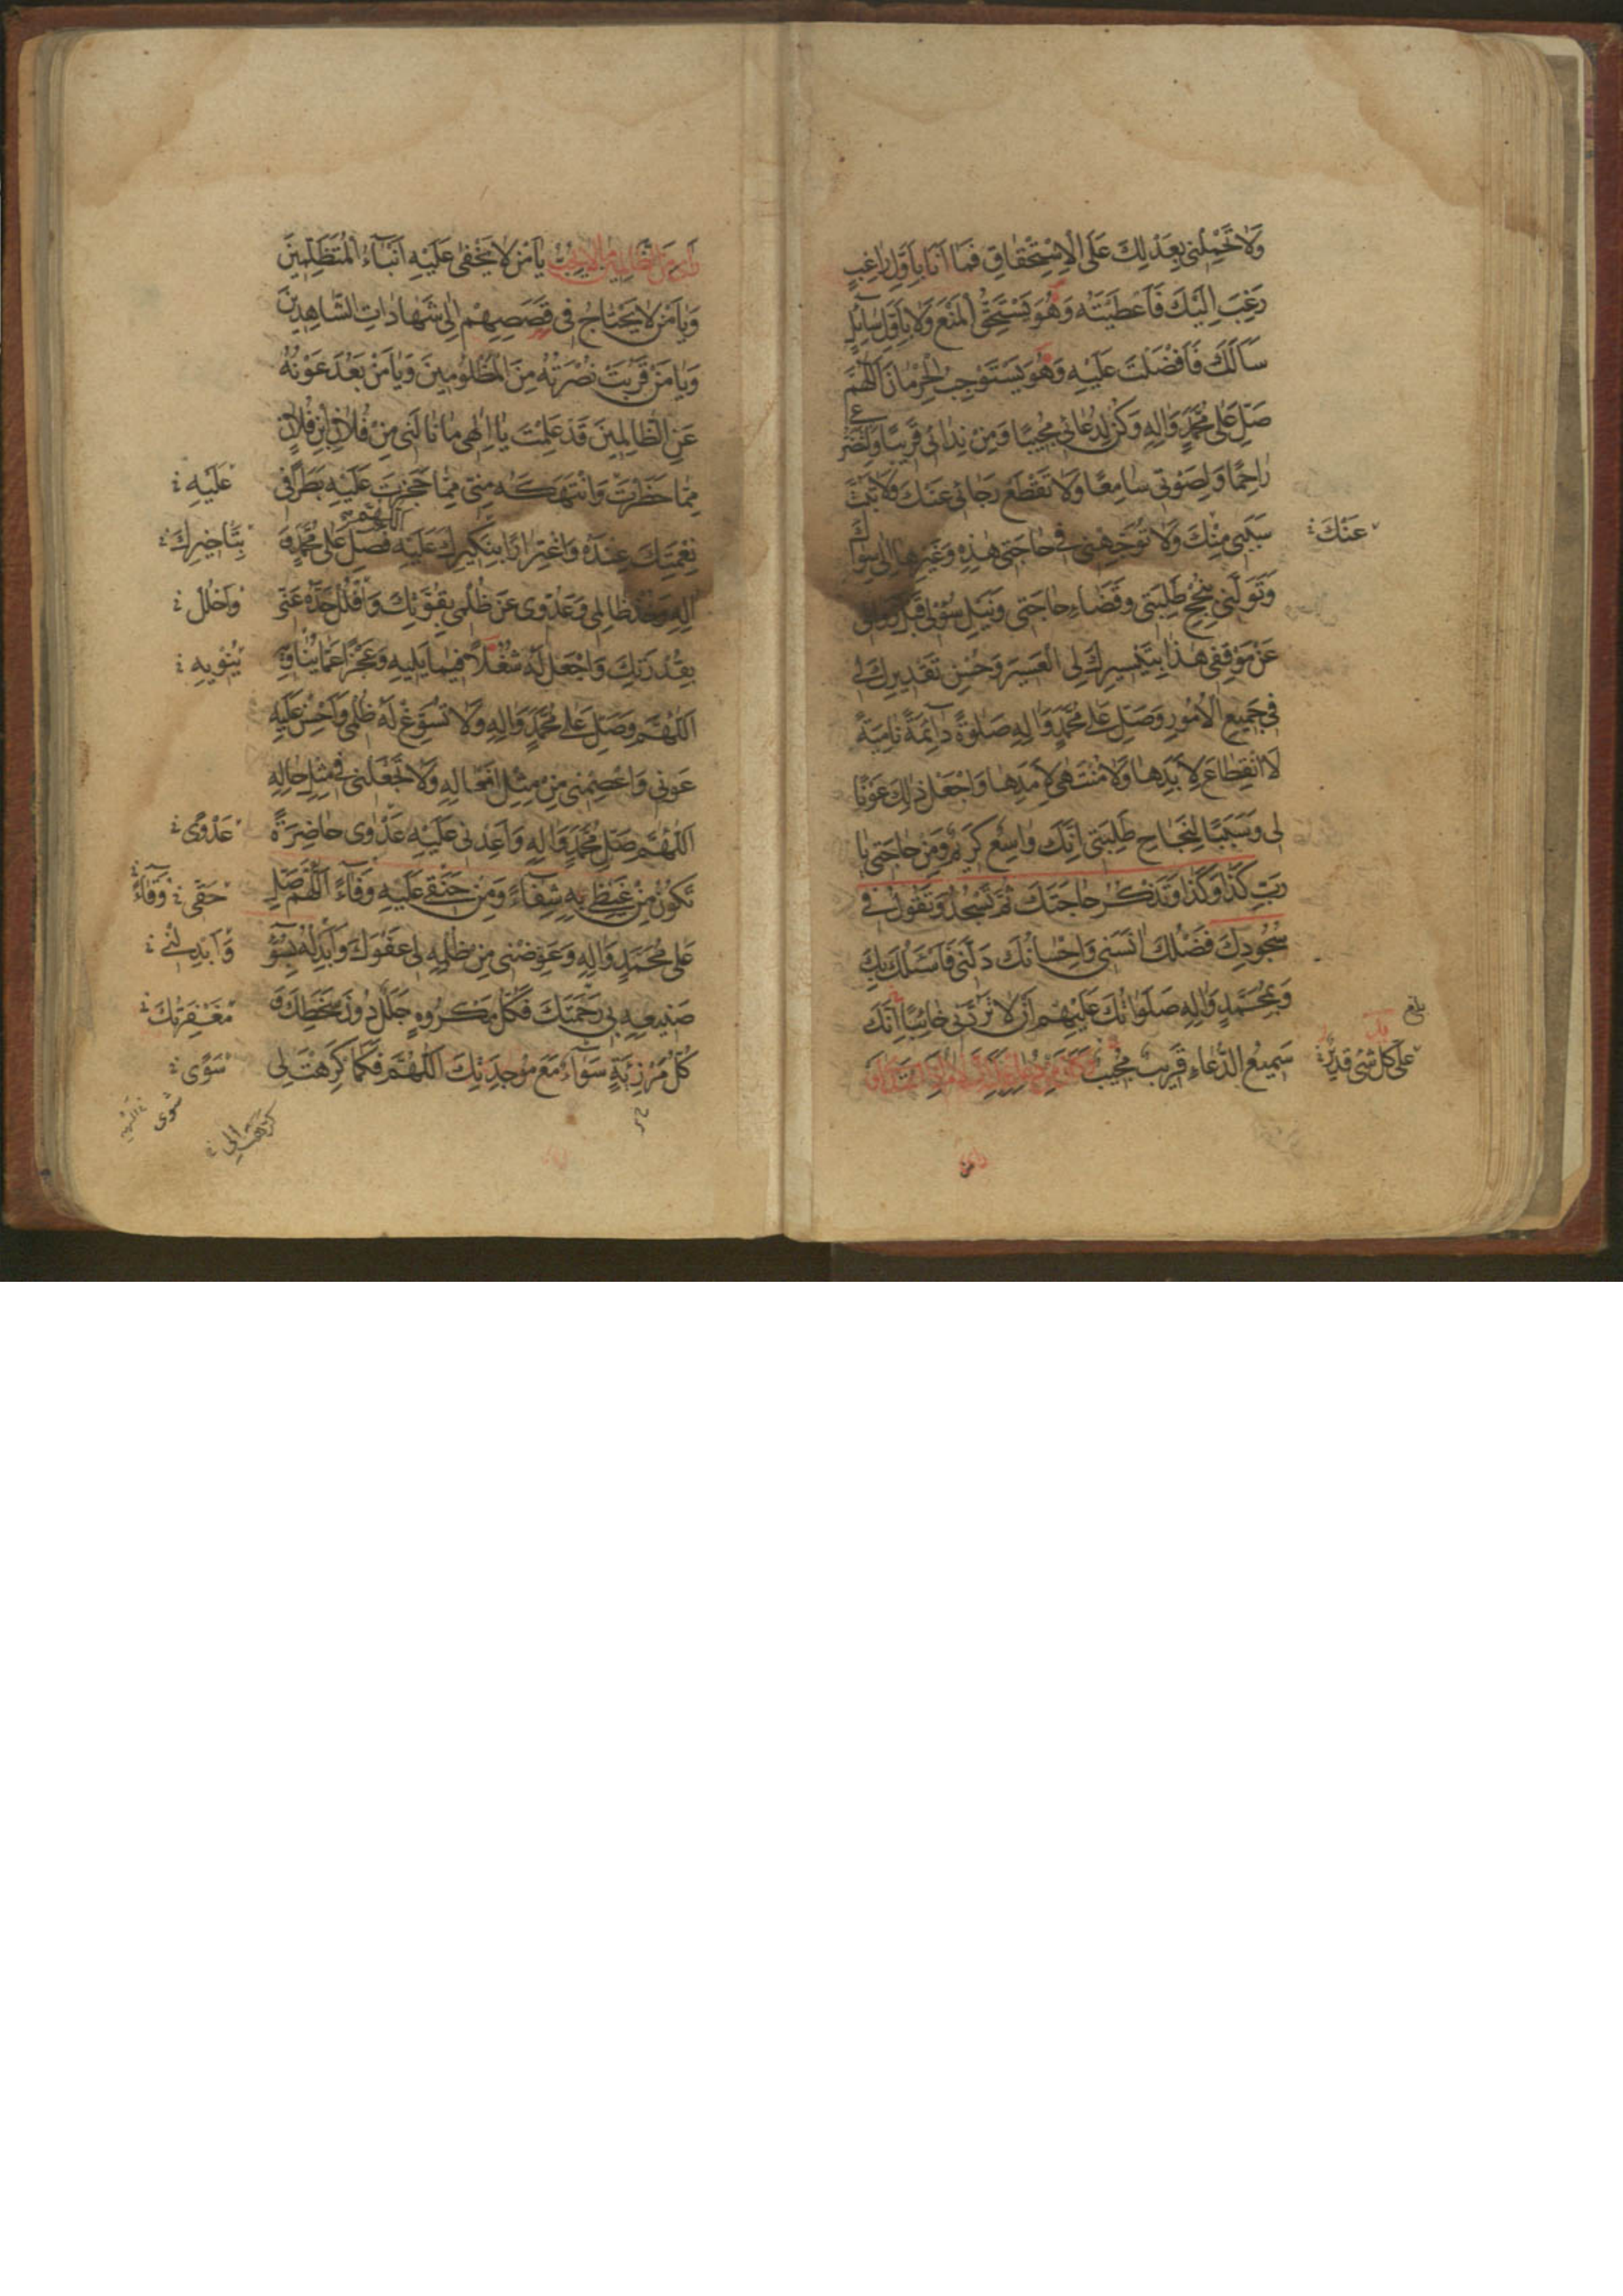 وَلَا تَحْمِلْنِی بِعَدْلِكَ عَلَی الْاِسْتِحْقَاقِ فَمَا اَنَا بِاَوَّلِ رَاغِبٍ
رَغِبَ اِلَيْكَ فَاَعْطَيْتَهُ وَهُوَ يَسْتَحِقُّ الْمَنْعَ وَلَا بِاَوَّلِ سَآئِلٍ
سَاَلَكَ فَاَفْضَلْتَ عَلَيْهِ وَهُوَ يَسْتَوْجِبُ الْحِرْمَانَ اَللّٰهُمَّ
صَلِّ عَلٰی مُحَمَّدٍ وَاٰلِهِ وَكُنْ لِدُعَائِی مُجِيبًا وَمِنْ نِدَائِی قَرِيبًا وَلِتَضَرُّعِی
رَاحِمًا وَلِصَوْتِی سَامِعًا وَلَا تَقْطَعْ رَجَائِی عَنْكَ وَلَا تَبُتَّ
سَبَبِی مِنْكَ وَلَا تُوَجِّهْنِی فِی حَاجَتِی هٰذِهِ وَغَيْرِهَا اِلٰی سِوَاكَ
عَنْكَ
وَتَوَلَّنِی بِنُجْحِ طَلِبَتِی وَقَضَاءِ حَاجَتِی وَنَيْلِ سُؤْلِی قَبْلَ زَوَالِی
عَنْ مَوْقِفِی هٰذَا بِتَيْسِيرِكَ لِیَ الْعَسِيرَ وَحُسْنِ تَقْدِيرِكَ لِی
فِی جَمِيعِ الْاُمُورِ وَصَلِّ عَلٰی مُحَمَّدٍ وَاٰلِهِ صَلٰوةً دَآئِمَةً نَامِيَةً
لَا انْقِطَاعَ لِاَبَدِهَا وَلَا مُنْتَهٰی لِاَمَدِهَا وَاجْعَلْ ذٰلِكَ عَوْنًا
لِی وَسَبَبًا لِنَجَاحِ طَلِبَتِی اِنَّكَ وَاسِعٌ كَرِيمٌ وَمِنْ حَاجَتِی يَا
رَبِّ كَذَا وَكَذَا وَتَذْكُرُ حَاجَتَكَ ثُمَّ تَسْجُدُ وَتَقُولُ فِی
سُجُودِكَ فَضْلُكَ اٰنَسَنِی وَاِحْسَانُكَ دَلَّنِی فَاَسْئَلُكَ بِكَ
وَبِمُحَمَّدٍ وَاٰلِهِ صَلَوَاتُكَ عَلَيْهِمْ اَنْ لَا تَرُدَّنِی خَائِبًا اِنَّكَ
بلغ
سَمِيعُ الدُّعَاءِ قَرِيبٌ مُجِيبٌ وَكَانَ مِنْ دُعَائِهِ عَلَيْهِ السَّلَامُ اِذَا اعْتُدِیَ عَلَيْهِ اَوْ
عَلٰی كُلِّ شَیْءٍ قَدِيرٌ
رَاٰی مِنَ الظَّالِمِينَ مَا لَا يُحِبُّ يَا مَنْ لَا يَخْفٰی عَلَيْهِ اَنْبَآءُ الْمُتَظَلِّمِينَ
وَيَا مَنْ لَا يَحْتَاجُ فِی قَصَصِهِمْ اِلٰی شَهَادَاتِ الشَّاهِدِينَ
وَيَا مَنْ قَرُبَتْ نُصْرَتُهُ مِنَ الْمَظْلُومِينَ وَيَا مَنْ بَعُدَ عَوْنُهُ
عَنِ الظَّالِمِينَ قَدْ عَلِمْتَ يَا اِلٰهِی مَا نَالَنِی مِنْ فُلَانِ ابْنِ فُلَانٍ
مِمَّا حَظَرْتَ وَانْتَهَكَهُ مِنِّی مِمَّا حَجَزْتَ عَلَيْهِ بَطَرًا فِی
عَلَيْهِ
نِعْمَتِكَ عِنْدَهُ وَاغْتِرَارًا بِنَكِيرِكَ عَلَيْهِ اَللّٰهُمَّ فَصَلِّ عَلٰی مُحَمَّدٍ وَ
اٰلِهِ وَخُذْ ظَالِمِی وَعَدُوِّی عَنْ ظُلْمِی بِقُوَّتِكَ وَافْلُلْ حَدَّهُ عَنِّی
بِقُدْرَتِكَ وَاجْعَلْ لَهُ شُغْلًا فِيمَا يَلِيهِ وَعَجْزًا عَمَّا يُنَاوِيهِ
يَنْوِيهِ
اَللّٰهُمَّ وَصَلِّ عَلٰی مُحَمَّدٍ وَاٰلِهِ وَلَا تُسَوِّغْ لَهُ ظُلْمِی وَاَحْسِنْ عَلَيْهِ
عَوْنِی وَاعْصِمْنِی مِنْ مِثْلِ اَفْعَالِهِ وَلَا تَجْعَلْنِی فِی مِثْلِ حَالِهِ
اَللّٰهُمَّ صَلِّ مُحَمَّدٍ وَاٰلِهِ وَاَعْدِنِی عَلَيْهِ عَدْوٰی حَاضِرَةً
عَدْوًی
تَكُونُ مِنْ غَيْظِی بِهِ شِفَآءً وَمِنْ حَنَقِی عَلَيْهِ وَفَآءً اَللّٰهُمَّ صَلِّ
عَلٰی مُحَمَّدٍ وَاٰلِهِ وَعَوِّضْنِی مِنْ ظُلْمِهِ لِی عَفْوَكَ وَاَبْدِلْهُ بِسُوٓءِ
وَاَبْدِلْنِی
صَنِيعِهِ بِی رَحْمَتَكَ فَكُلُّ مَكْرُوهٍ جَلَلٌ دُونَ سَخَطِكَ وَ
مَغْفِرَتَكَ
كُلُّ مُرْزِئَةٍ سَوَآءٌ مَعَ مَوْجِدَتِكَ اَللّٰهُمَّ فَكَمَا كَرَّهْتَ لِی
سَوًی